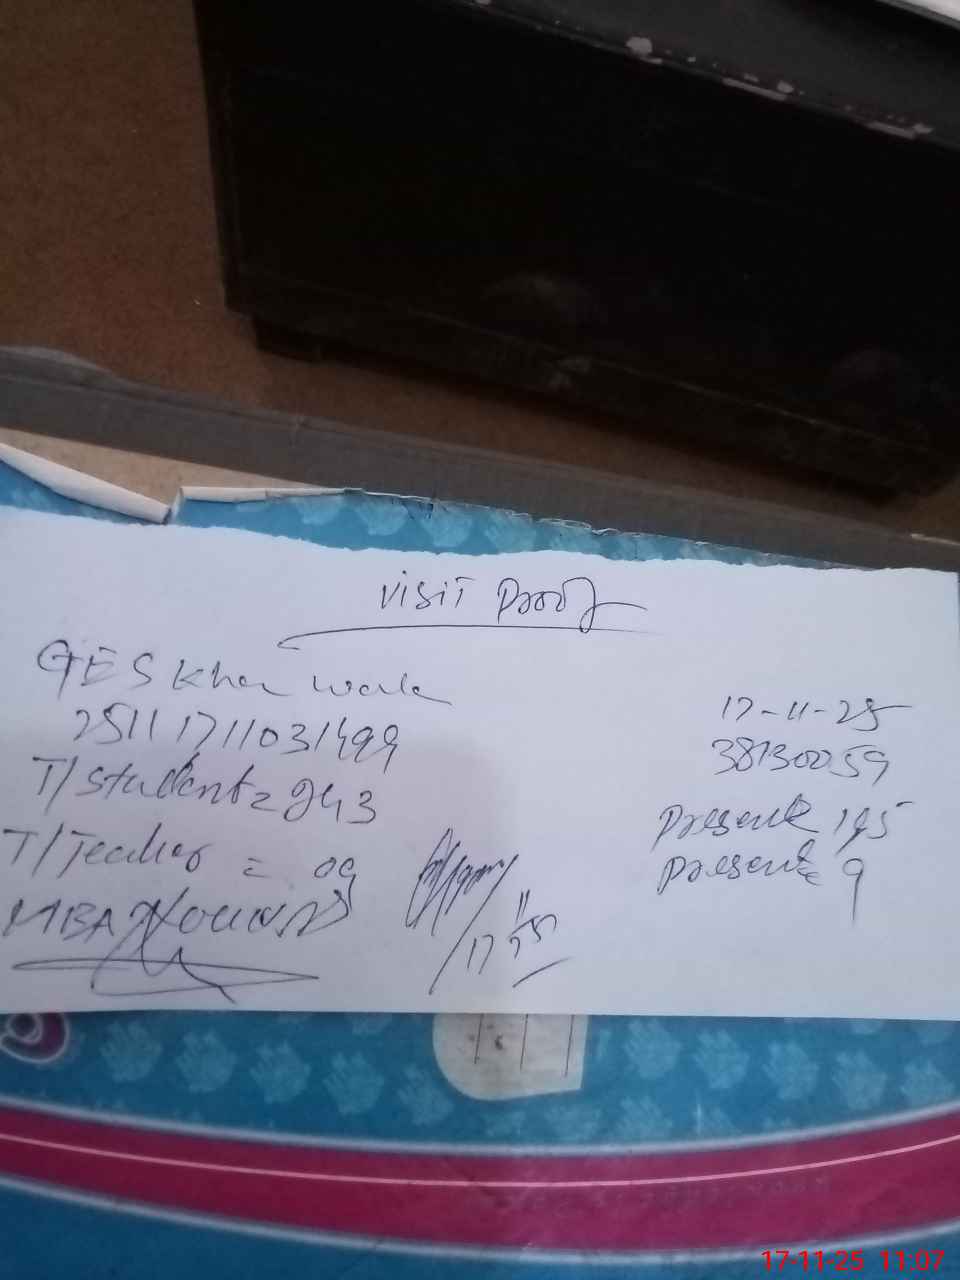 VISIT Proof
GES Khan wala 17-11-25
25111711031499 38130059
T/Student = 243 Present 195
T/Teacher = 09 Present 9
MBA
17/11/25
17-11-25 11:07